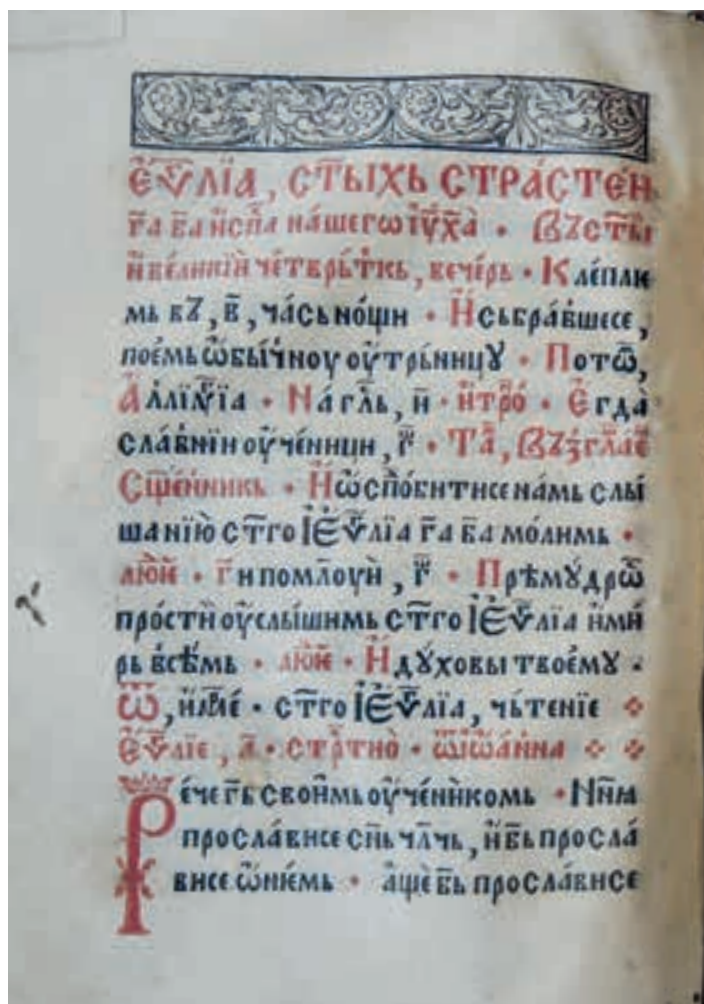 Е҆ѵⷢ҇лїа, ст҃ыхь страсте́н
га҃ ба҃ и҆ сп҃а на́шегѡ і҆у҃ х҃а • Въ ст҃ы
и҆ вели́кїи че́тврьткь, вече́рь • Кле́плю
мь въ, в҃, ча́сь но́щи • И҆ сьбра́вшесе,
пое́мь ѡ҆бы́чноу оу҆трьницꙋ • Пото̑,
А҆ллїлꙋїа • На́ гл҃ь, и҃ • и҆ тро̑ • Е҆гда̀
сла́внїи оу҆че́ници, г҃ • Та̑, Възгла́с
Сщ҃е́нникь • И҆ ѡ҆ спо́битисе на́мь слы́
шанїю̀ ст҃го Іе҆ѵⷢ҇лїа га҃ ба҃ мо́лимь •
лю́ⷣїе • Г҃и поми́лоуи, г҃ • Прѣмꙋ́дрѡ
про́сти оу҆слы́шимь ст҃го Іе҆ѵⷢ҇лїа и҆ ми́
рь всѣ́мь • лю́ⷣїе • И҆ дꙋ́ховы твоемꙋ̀ •
Ѿ, и҆мⷬ҇е • ст҃го Іе҆ѵⷢ҇лїа, чьтенїе
Е҆ѵⷢ҇лїе, а҃ • стрⷭ҇тно • ѿ Іѡ҆а́нна
Рече гь҃ свои҆мь оу҆че́никомь • Нн҃ꙗ
просла́висе сн҃ь чл҃чь, и҆ бь҃ просла́
висе ѡ҆ ніе́мь • а҆ще бь҃ просла́висе